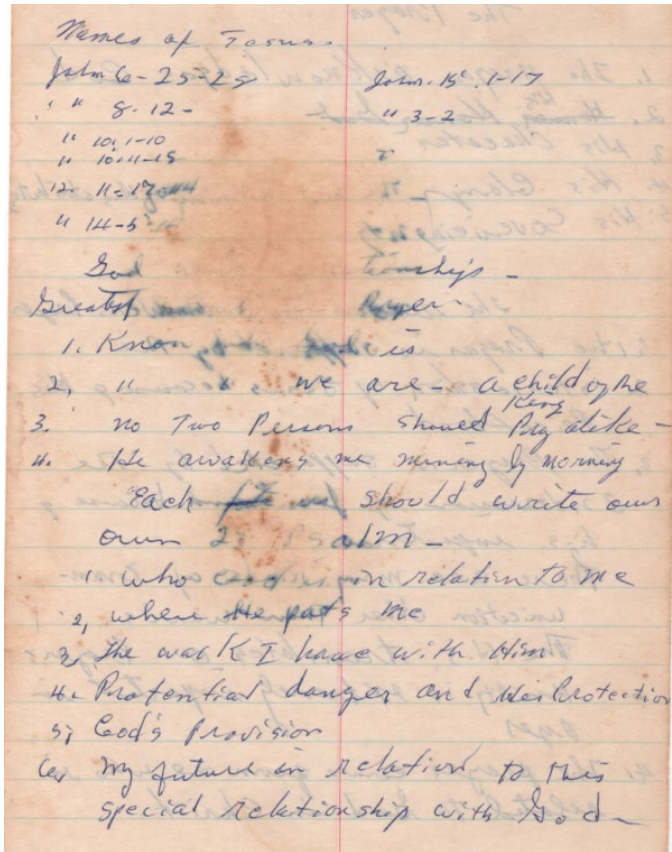 Names of Jesus.
John 6-25-28 John. 15. 1-17
" " 8-12- " 3-2
" 10. 1-10
" 10:11-15
12. 11-17
" 14-6
God tionship -
Greatest Prayer.
1. Know is
2, " " we are - a child of the King
3. no Two Persons should Pray alike -
4. He awakens me morning by morning
Each should write our
own 23 Psalm -
1. who God is in relation to me
2, where He puts me
3, the walk I have with Him
4. Protential danger and His Protection
5, God's Provision
6, My future in relation to this
special relationship with God -